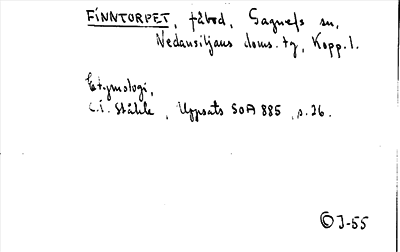 FINNTORPET, fäbod, Gagnefs sn,
Nedansiljans doms. tg, Kopp. l.
Etymologi,
C.I. Ståhle, Uppsats SOA 885, s. 26.
© J-55